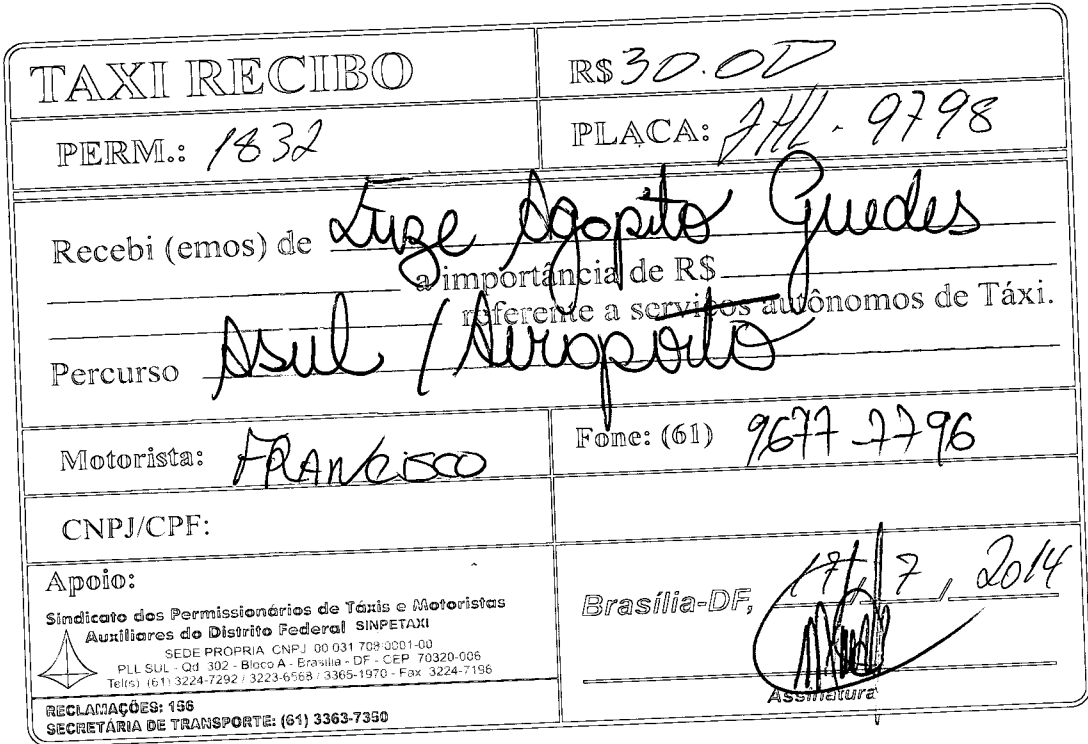 TAXI RECIBO
R$ 30.00
PERM.: 1832
PLACA: JHL - 9798
Recebi (emos) de Luze Agopito Guedes
a importância de R$
referente a serviços autônomos de Táxi.
Percurso Asul / Airoporto
Motorista: FRANCISCO
Fone: (61) 9677-7796
CNPJ/CPF:
Apoio:
Sindicato dos Permissionários de Táxis e Motoristas
Auxiliares do Distrito Federal SINPETAXI
SEDE PROPRIA CNPJ 00 031 708 0001-00
PLL SUL - Qd 302 - Bloco A - Brasília - DF - CEP 70320-006
Tel(s) (61) 3224-7292 / 3223-6568 / 3365-1970 - Fax 3224-7196
RECLAMAÇÕES: 156
SECRETÁRIA DE TRANSPORTE: (61) 3363-7350
Brasília-DF, 17 / 7 / 2014
Assinatura